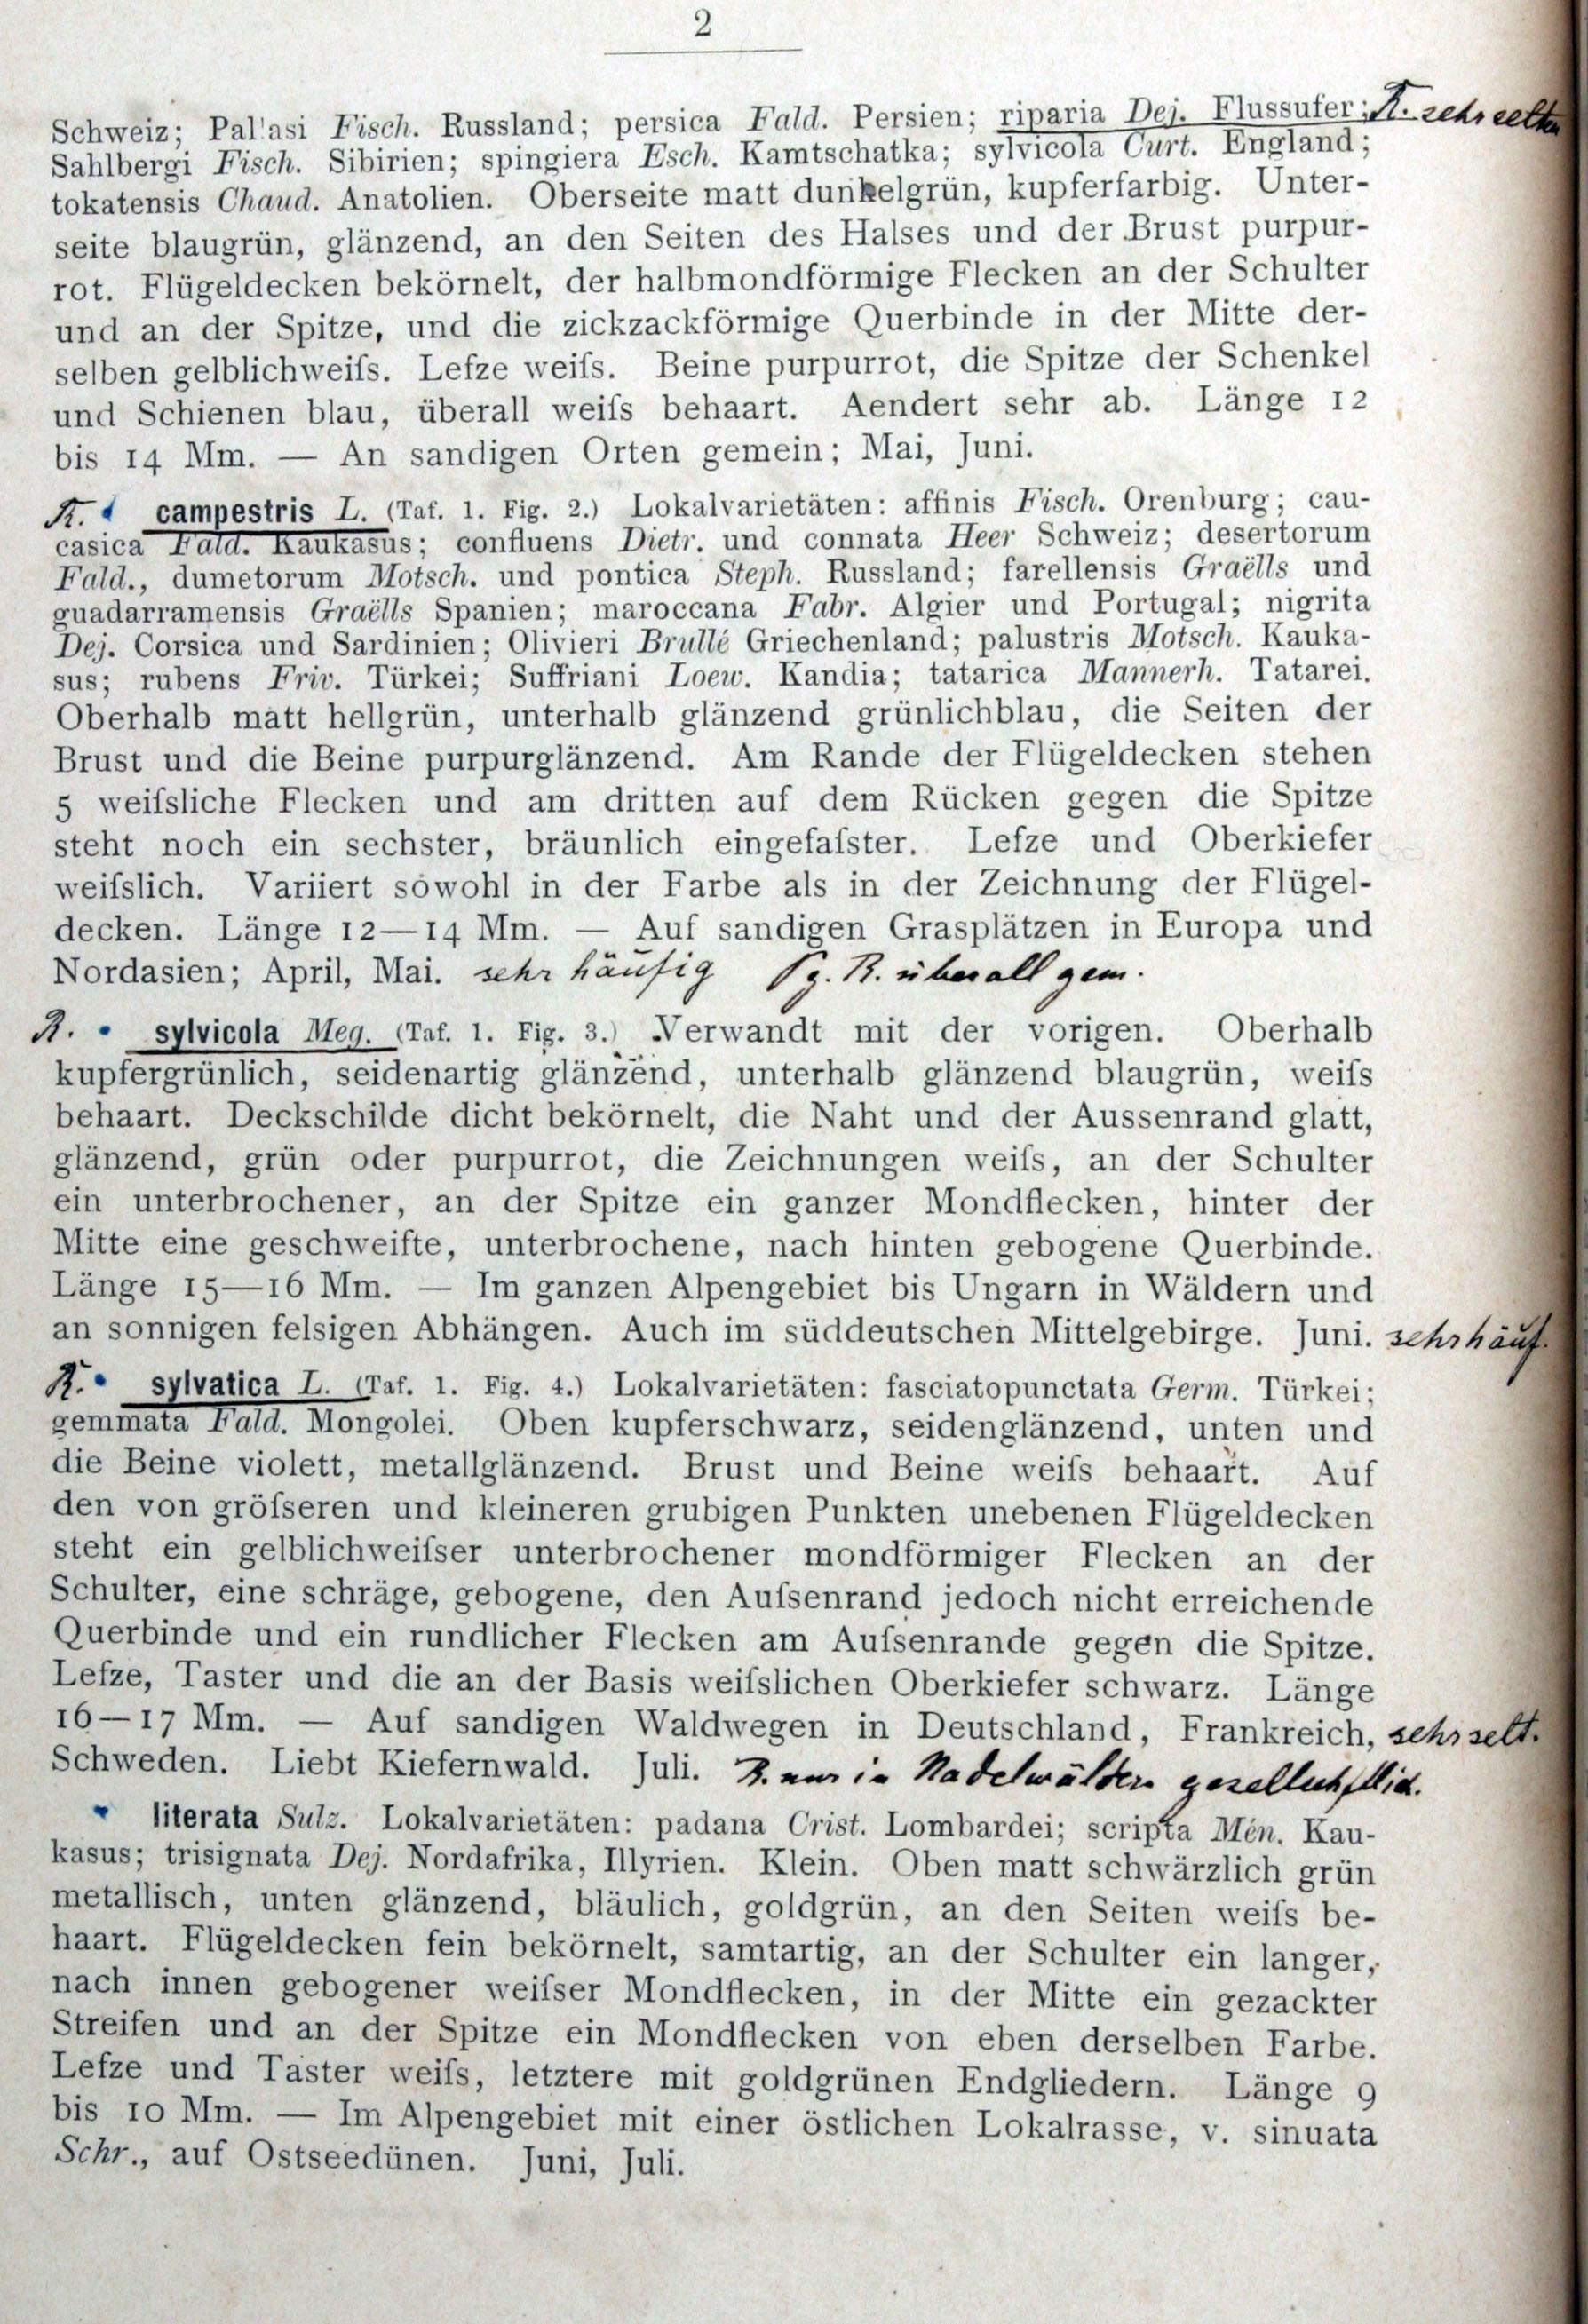 2
Schweiz; Pallasi Fisch. Russland; persica Fald. Persien; riparia Dej. Flussufer; R. sehr selten
Sahlbergi Fisch. Sibirien; spingiera Esch. Kamtschatka; sylvicola Curt. England;
tokatensis Chaud. Anatolien. Oberseite matt dunkelgrün, kupferfarbig. Unter-
seite blaugrün, glänzend, an den Seiten des Halses und der Brust purpur-
rot. Flügeldecken bekörnelt, der halbmondförmige Flecken an der Schulter
und an der Spitze, und die zickzackförmige Querbinde in der Mitte der-
selben gelblichweiſs. Lefze weiſs. Beine purpurrot, die Spitze der Schenkel
und Schienen blau, überall weiſs behaart. Aendert sehr ab. Länge 12
bis 14 Mm. — An sandigen Orten gemein; Mai, Juni.
R. campestris L. (Taf. 1. Fig. 2.) Lokalvarietäten: affinis Fisch. Orenburg; cau-
casica Fald. Kaukasus; confluens Dietr. und connata Heer Schweiz; desertorum
Fald., dumetorum Motsch. und pontica Steph. Russland; farellensis Graëlls und
guadarramensis Graëlls Spanien; maroccana Fabr. Algier und Portugal; nigrita
Dej. Corsica und Sardinien; Olivieri Brullé Griechenland; palustris Motsch. Kauka-
sus; rubens Friv. Türkei; Suffriani Loew. Kandia; tatarica Mannerh. Tatarei.
Oberhalb matt hellgrün, unterhalb glänzend grünlichblau, die Seiten der
Brust und die Beine purpurglänzend. Am Rande der Flügeldecken stehen
5 weiſsliche Flecken und am dritten auf dem Rücken gegen die Spitze
steht noch ein sechster, bräunlich eingefaſster. Lefze und Oberkiefer
weiſslich. Variiert sowohl in der Farbe als in der Zeichnung der Flügel-
decken. Länge 12—14 Mm. — Auf sandigen Grasplätzen in Europa und
Nordasien; April, Mai. sehr häufig R. überall gem.
R. • sylvicola Meg. (Taf. 1. Fig. 3.) Verwandt mit der vorigen. Oberhalb
kupfergrünlich, seidenartig glänzend, unterhalb glänzend blaugrün, weiſs
behaart. Deckschilde dicht bekörnelt, die Naht und der Aussenrand glatt,
glänzend, grün oder purpurrot, die Zeichnungen weiſs, an der Schulter
ein unterbrochener, an der Spitze ein ganzer Mondflecken, hinter der
Mitte eine geschweifte, unterbrochene, nach hinten gebogene Querbinde.
Länge 15—16 Mm. — Im ganzen Alpengebiet bis Ungarn in Wäldern und
an sonnigen felsigen Abhängen. Auch im süddeutschen Mittelgebirge. Juni. sehr häuf.
R. • sylvatica L. (Taf. 1. Fig. 4.) Lokalvarietäten: fasciatopunctata Germ. Türkei;
gemmata Fald. Mongolei. Oben kupferschwarz, seidenglänzend, unten und
die Beine violett, metallglänzend. Brust und Beine weiſs behaart. Auf
den von gröſseren und kleineren grubigen Punkten unebenen Flügeldecken
steht ein gelblichweiſser unterbrochener mondförmiger Flecken an der
Schulter, eine schräge, gebogene, den Auſsenrand jedoch nicht erreichende
Querbinde und ein rundlicher Flecken am Auſsenrande gegen die Spitze.
Lefze, Taster und die an der Basis weiſslichen Oberkiefer schwarz. Länge
16—17 Mm. — Auf sandigen Waldwegen in Deutschland, Frankreich, sehr selt.
Schweden. Liebt Kiefernwald. Juli. R. nur in Nadelwäldern
• literata Sulz. Lokalvarietäten: padana Crist. Lombardei; scripta Mén. Kau-
kasus; trisignata Dej. Nordafrika, Illyrien. Klein. Oben matt schwärzlich grün
metallisch, unten glänzend, bläulich, goldgrün, an den Seiten weiſs be-
haart. Flügeldecken fein bekörnelt, samtartig, an der Schulter ein langer,
nach innen gebogener weiſser Mondflecken, in der Mitte ein gezackter
Streifen und an der Spitze ein Mondflecken von eben derselben Farbe.
Lefze und Taster weiſs, letztere mit goldgrünen Endgliedern. Länge 9
bis 10 Mm. — Im Alpengebiet mit einer östlichen Lokalrasse, v. sinuata
Schr., auf Ostseedünen. Juni, Juli.